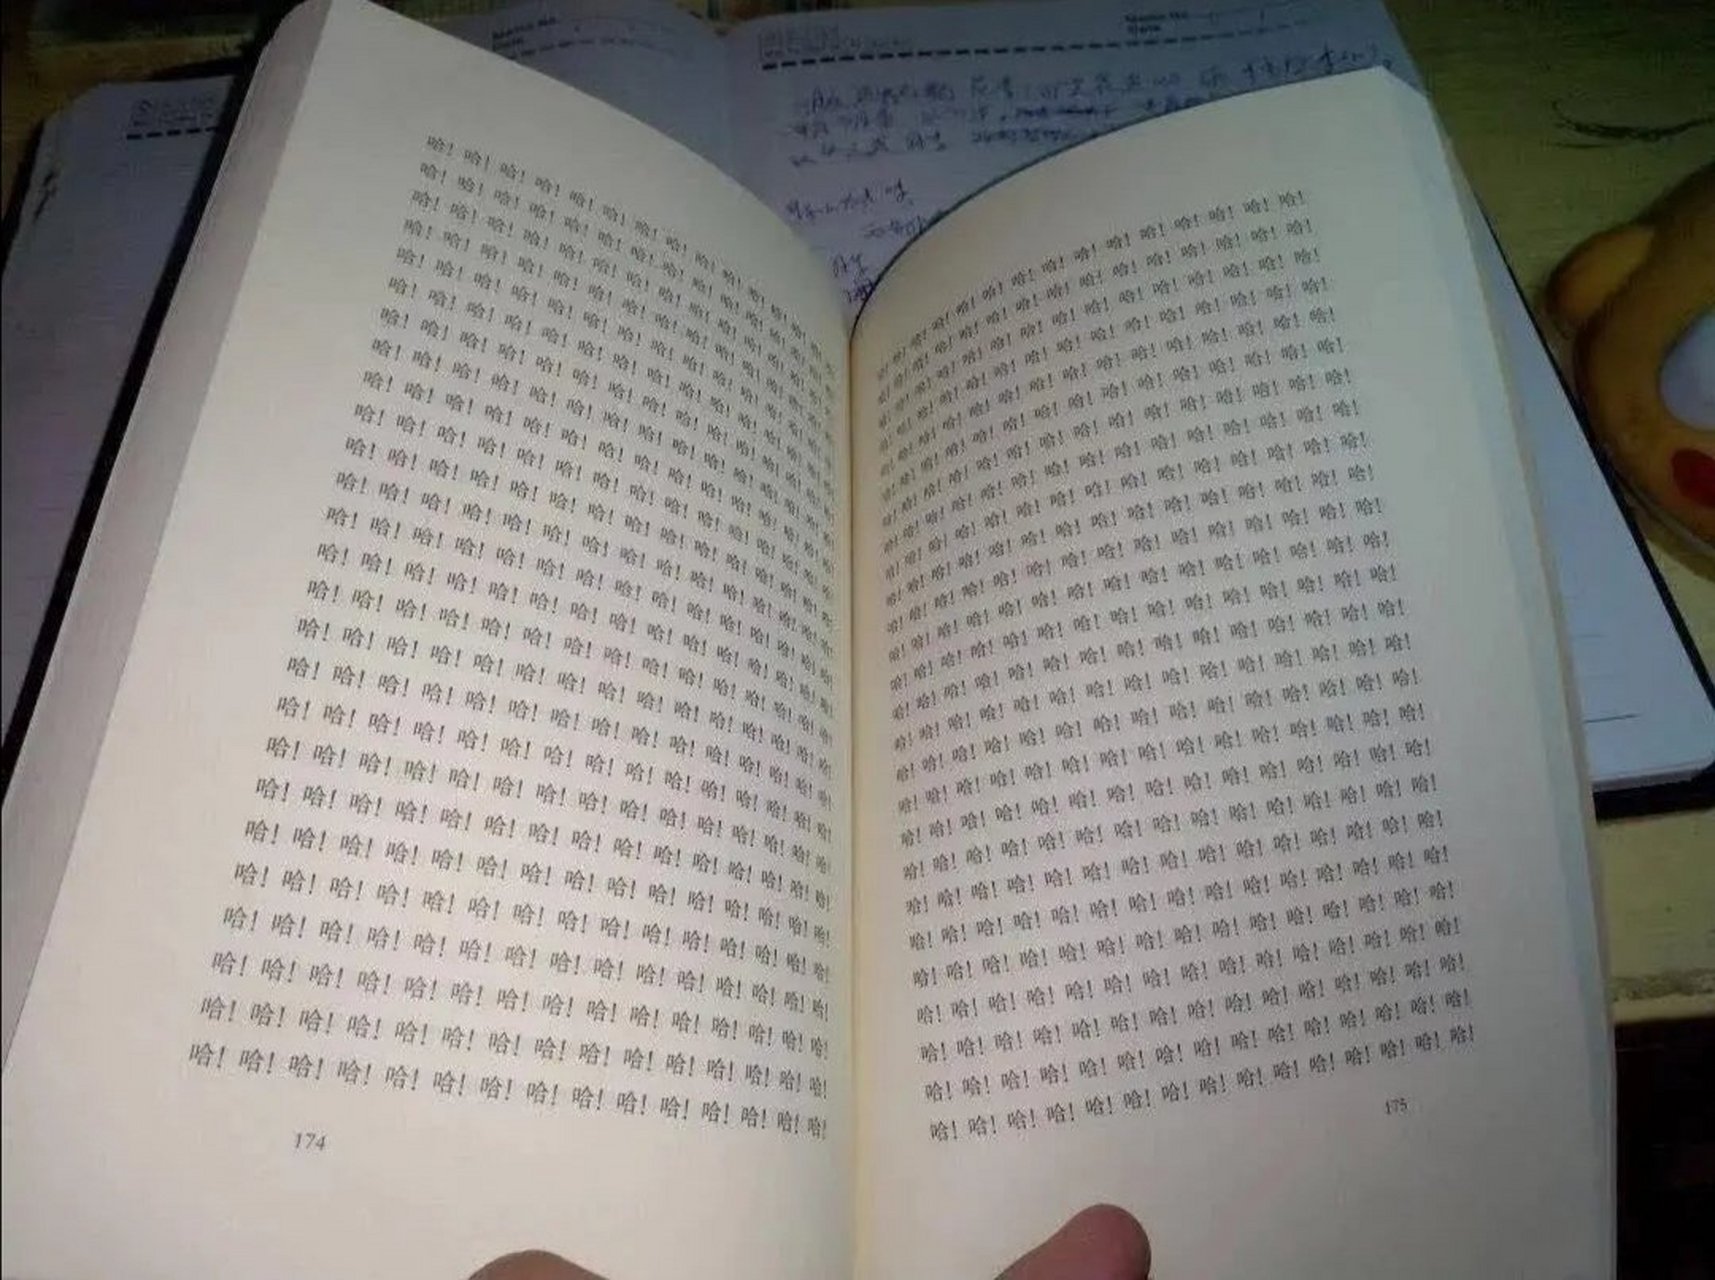 哈！哈！哈！哈！哈！哈！哈！哈！哈！哈！哈！哈！哈！哈！哈！
哈！哈！哈！哈！哈！哈！哈！哈！哈！哈！哈！哈！哈！哈！哈！
哈！哈！哈！哈！哈！哈！哈！哈！哈！哈！哈！哈！哈！哈！哈！
哈！哈！哈！哈！哈！哈！哈！哈！哈！哈！哈！哈！哈！哈！哈！
哈！哈！哈！哈！哈！哈！哈！哈！哈！哈！哈！哈！哈！哈！哈！
哈！哈！哈！哈！哈！哈！哈！哈！哈！哈！哈！哈！哈！哈！哈！
哈！哈！哈！哈！哈！哈！哈！哈！哈！哈！哈！哈！哈！哈！哈！
哈！哈！哈！哈！哈！哈！哈！哈！哈！哈！哈！哈！哈！哈！哈！
哈！哈！哈！哈！哈！哈！哈！哈！哈！哈！哈！哈！哈！哈！哈！
哈！哈！哈！哈！哈！哈！哈！哈！哈！哈！哈！哈！哈！哈！哈！
哈！哈！哈！哈！哈！哈！哈！哈！哈！哈！哈！哈！哈！哈！哈！
哈！哈！哈！哈！哈！哈！哈！哈！哈！哈！哈！哈！哈！哈！哈！
哈！哈！哈！哈！哈！哈！哈！哈！哈！哈！哈！哈！哈！哈！哈！
哈！哈！哈！哈！哈！哈！哈！哈！哈！哈！哈！哈！哈！哈！哈！
哈！哈！哈！哈！哈！哈！哈！哈！哈！哈！哈！哈！哈！哈！哈！
哈！哈！哈！哈！哈！哈！哈！哈！哈！哈！哈！哈！哈！哈！哈！
哈！哈！哈！哈！哈！哈！哈！哈！哈！哈！哈！哈！哈！哈！哈！
哈！哈！哈！哈！哈！哈！哈！哈！哈！哈！哈！哈！哈！哈！哈！
哈！哈！哈！哈！哈！哈！哈！哈！哈！哈！哈！哈！哈！哈！哈！
哈！哈！哈！哈！哈！哈！哈！哈！哈！哈！哈！哈！哈！哈！哈！
哈！哈！哈！哈！哈！哈！哈！哈！哈！哈！哈！哈！哈！哈！哈！
哈！哈！哈！哈！哈！哈！哈！哈！哈！哈！哈！哈！哈！哈！哈！
哈！哈！哈！哈！哈！哈！哈！哈！哈！哈！哈！哈！哈！哈！哈！
哈！哈！哈！哈！哈！哈！哈！哈！哈！哈！哈！哈！哈！哈！哈！
哈！哈！哈！哈！哈！哈！哈！哈！哈！哈！哈！哈！哈！哈！哈！
哈！哈！哈！哈！哈！哈！哈！哈！哈！哈！哈！哈！哈！哈！哈！
174
哈！哈！哈！哈！哈！哈！哈！哈！哈！哈！哈！哈！哈！哈！哈！
哈！哈！哈！哈！哈！哈！哈！哈！哈！哈！哈！哈！哈！哈！哈！
哈！哈！哈！哈！哈！哈！哈！哈！哈！哈！哈！哈！哈！哈！哈！
哈！哈！哈！哈！哈！哈！哈！哈！哈！哈！哈！哈！哈！哈！哈！
哈！哈！哈！哈！哈！哈！哈！哈！哈！哈！哈！哈！哈！哈！哈！
哈！哈！哈！哈！哈！哈！哈！哈！哈！哈！哈！哈！哈！哈！哈！
哈！哈！哈！哈！哈！哈！哈！哈！哈！哈！哈！哈！哈！哈！哈！
哈！哈！哈！哈！哈！哈！哈！哈！哈！哈！哈！哈！哈！哈！哈！
哈！哈！哈！哈！哈！哈！哈！哈！哈！哈！哈！哈！哈！哈！哈！
哈！哈！哈！哈！哈！哈！哈！哈！哈！哈！哈！哈！哈！哈！哈！
哈！哈！哈！哈！哈！哈！哈！哈！哈！哈！哈！哈！哈！哈！哈！
哈！哈！哈！哈！哈！哈！哈！哈！哈！哈！哈！哈！哈！哈！哈！
哈！哈！哈！哈！哈！哈！哈！哈！哈！哈！哈！哈！哈！哈！哈！
哈！哈！哈！哈！哈！哈！哈！哈！哈！哈！哈！哈！哈！哈！哈！
哈！哈！哈！哈！哈！哈！哈！哈！哈！哈！哈！哈！哈！哈！哈！
哈！哈！哈！哈！哈！哈！哈！哈！哈！哈！哈！哈！哈！哈！哈！
哈！哈！哈！哈！哈！哈！哈！哈！哈！哈！哈！哈！哈！哈！哈！
哈！哈！哈！哈！哈！哈！哈！哈！哈！哈！哈！哈！哈！哈！哈！
哈！哈！哈！哈！哈！哈！哈！哈！哈！哈！哈！哈！哈！哈！哈！
哈！哈！哈！哈！哈！哈！哈！哈！哈！哈！哈！哈！哈！哈！哈！
哈！哈！哈！哈！哈！哈！哈！哈！哈！哈！哈！哈！哈！哈！哈！
哈！哈！哈！哈！哈！哈！哈！哈！哈！哈！哈！哈！哈！哈！哈！
哈！哈！哈！哈！哈！哈！哈！哈！哈！哈！哈！哈！哈！哈！哈！
哈！哈！哈！哈！哈！哈！哈！哈！哈！哈！哈！哈！哈！哈！哈！
哈！哈！哈！哈！哈！哈！哈！哈！哈！哈！哈！哈！哈！哈！哈！
哈！哈！哈！哈！哈！哈！哈！哈！哈！哈！哈！哈！哈！哈！哈！
175